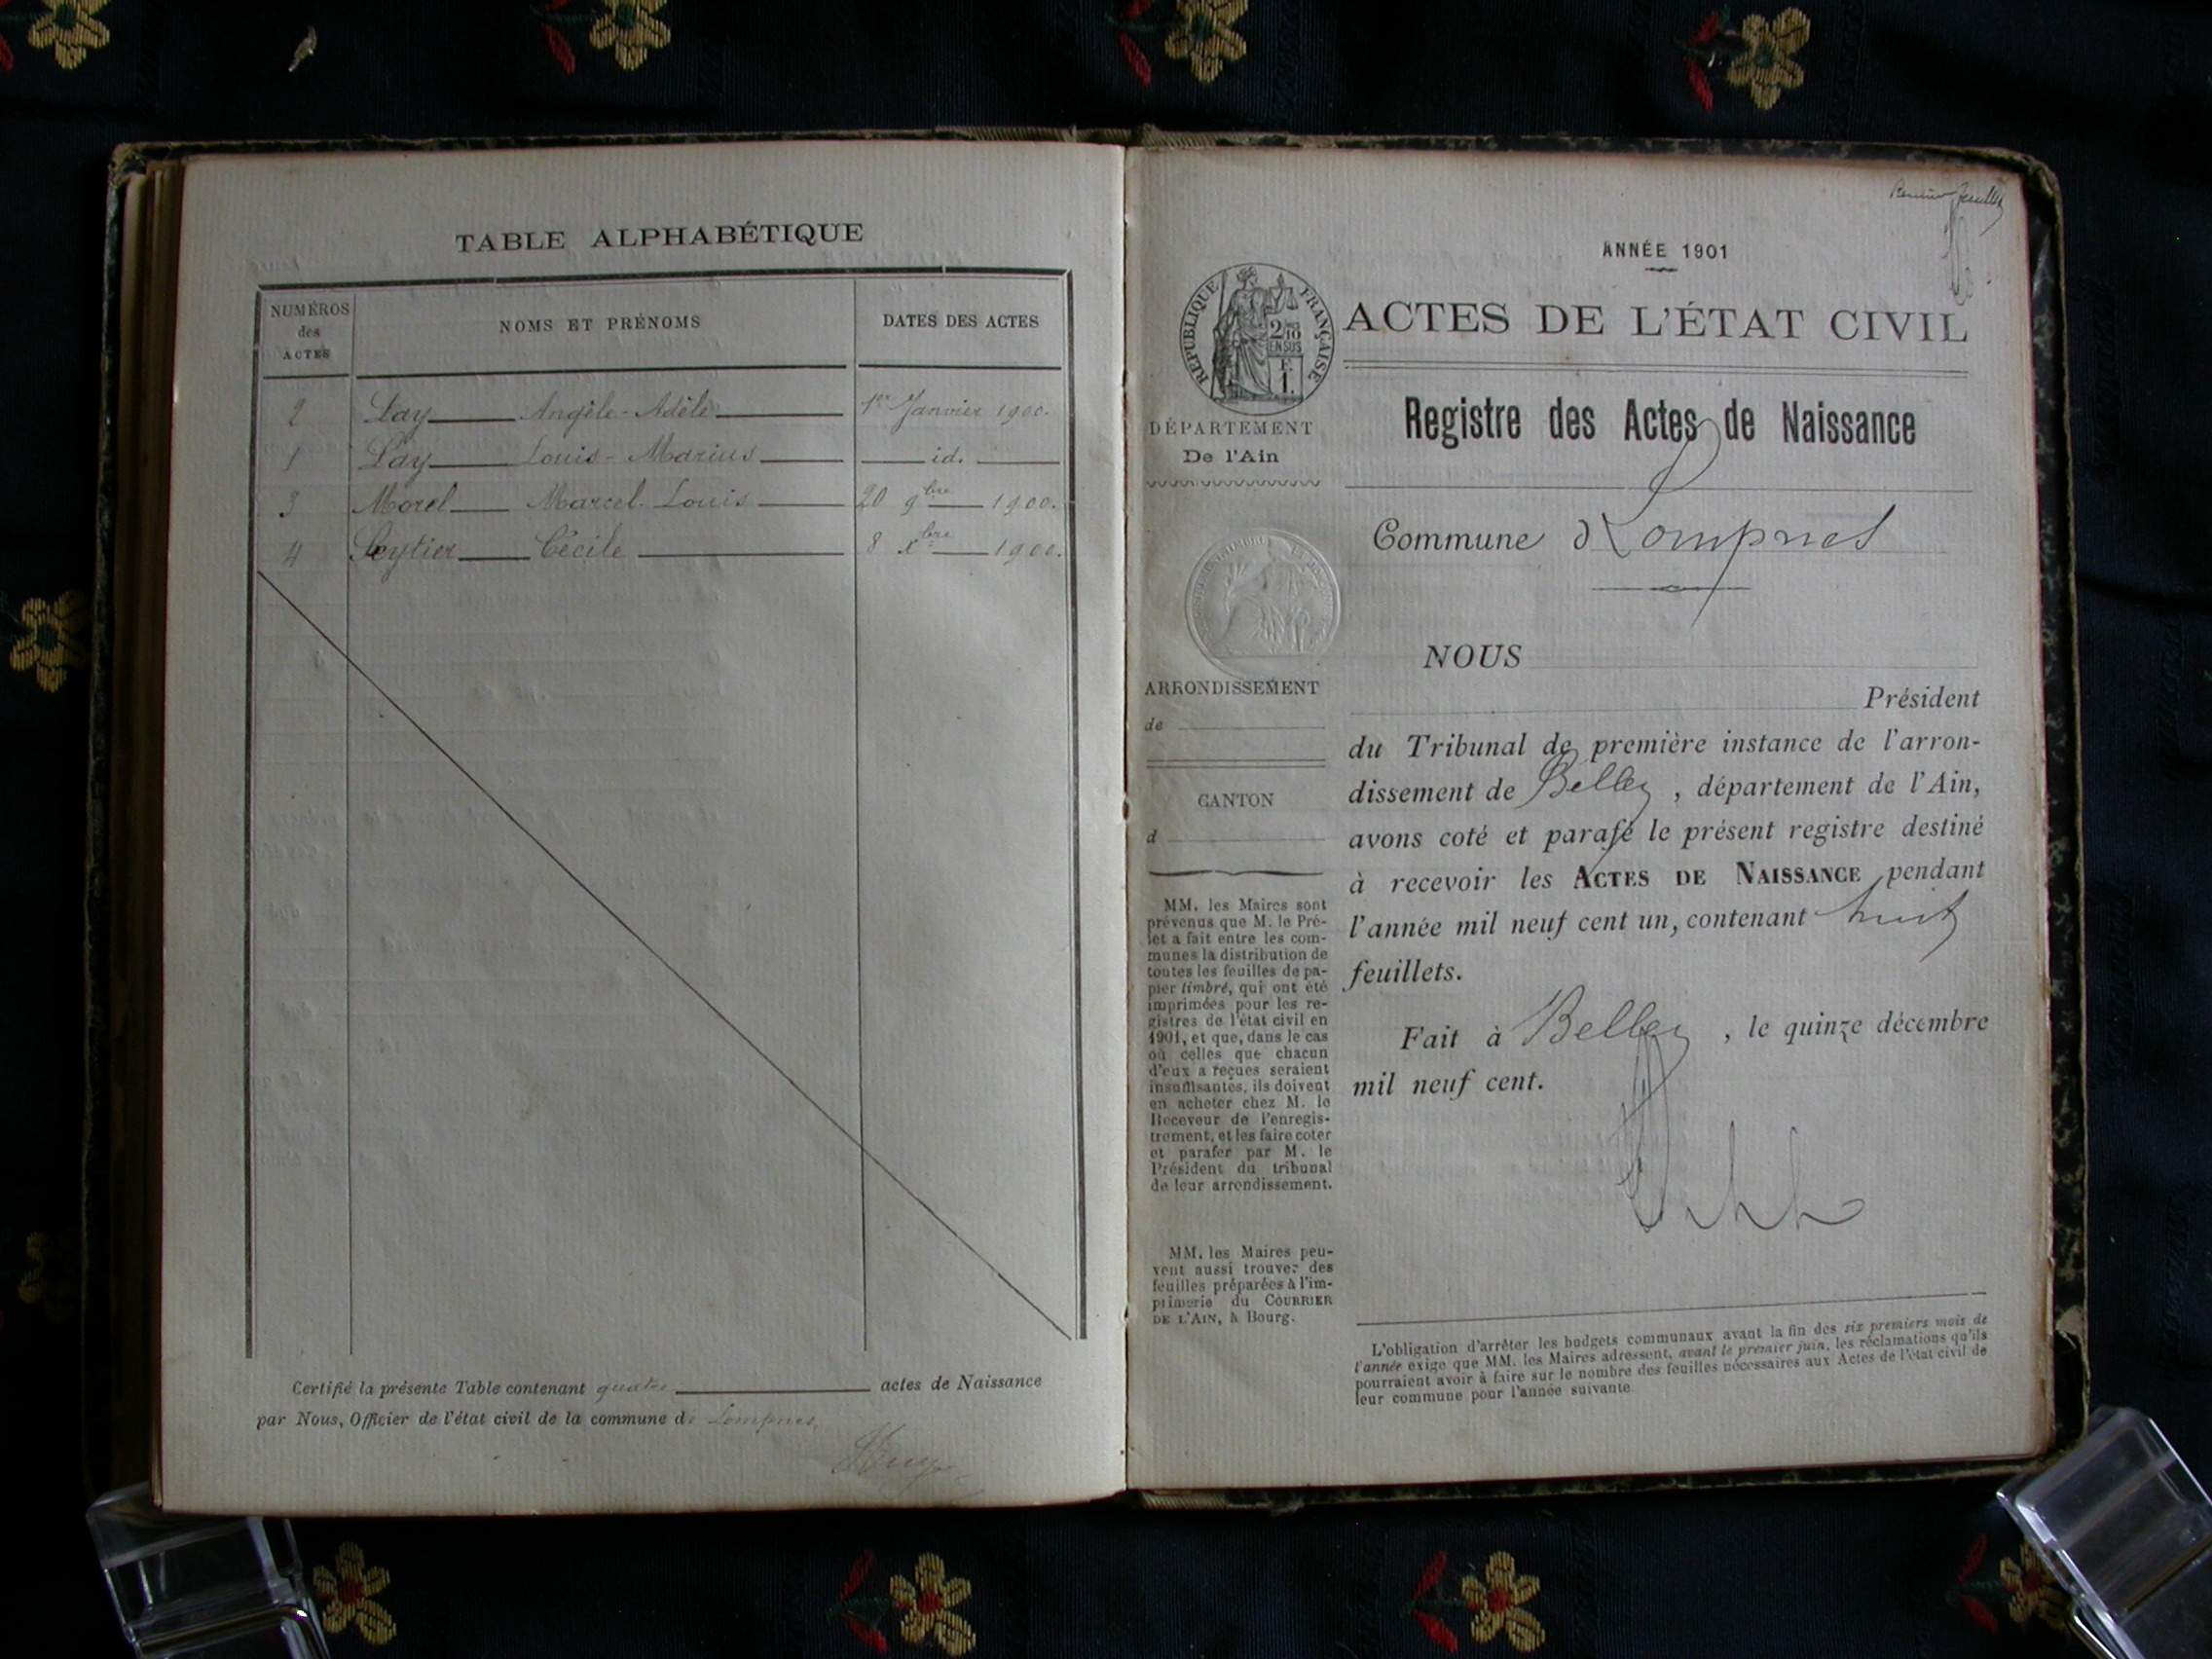 TABLE ALPHABÉTIQUE
NUMÉROS
des
ACTES
NOMS ET PRÉNOMS
DATES DES ACTES
2 Lay Angèle-Adèle 1er Janvier 1900.
1 Lay Louis-Marius id.
3 Morel Marcel-Louis 20 9bre 1900.
4 Seytier Cécile 8 Xbre 1900.
Certifié la présente Table contenant quatre actes de Naissance
par Nous, Officier de l'état civil de la commune de Lompnes.
Premier feuillet
ANNÉE 1901
RÉPUBLIQUE FRANÇAISE
2/10
EN SUS
F.
1.
ACTES DE L'ÉTAT CIVIL
Registre des Actes de Naissance
DÉPARTEMENT
De l'Ain
Commune d Lompnes
NOUS
Président
du Tribunal de première instance de l'arron-
dissement de Belley, département de l'Ain,
avons coté et parafé le présent registre destiné
à recevoir les ACTES DE NAISSANCE pendant
l'année mil neuf cent un, contenant huit
feuillets.
Fait à Belley, le quinze décembre
mil neuf cent.
ARRONDISSEMENT
de
CANTON
d
MM. les Maires sont
prévenus que M. le Pré-
fet a fait entre les com-
munes la distribution de
toutes les feuilles de pa-
pier timbré, qui ont été
imprimées pour les re-
gistres de l'état civil en
1901, et que, dans le cas
où celles que chacun
d'eux a reçues seraient
insuffisantes, ils doivent
en acheter chez M. le
Receveur de l'enregis-
trement, et les faire coter
et parafer par M. le
Président du tribunal
de leur arrondissement.
MM. les Maires peu-
vent aussi trouver des
feuilles préparées à l'im-
primerie du COURRIER
DE L'AIN, à Bourg.
L'obligation d'arrêter les budgets communaux avant la fin des six premiers mois de
l'année exige que MM. les Maires adressent, avant le premier juin, les réclamations qu'ils
pourraient avoir à faire sur le nombre des feuilles nécessaires aux Actes de l'état civil de
leur commune pour l'année suivante.